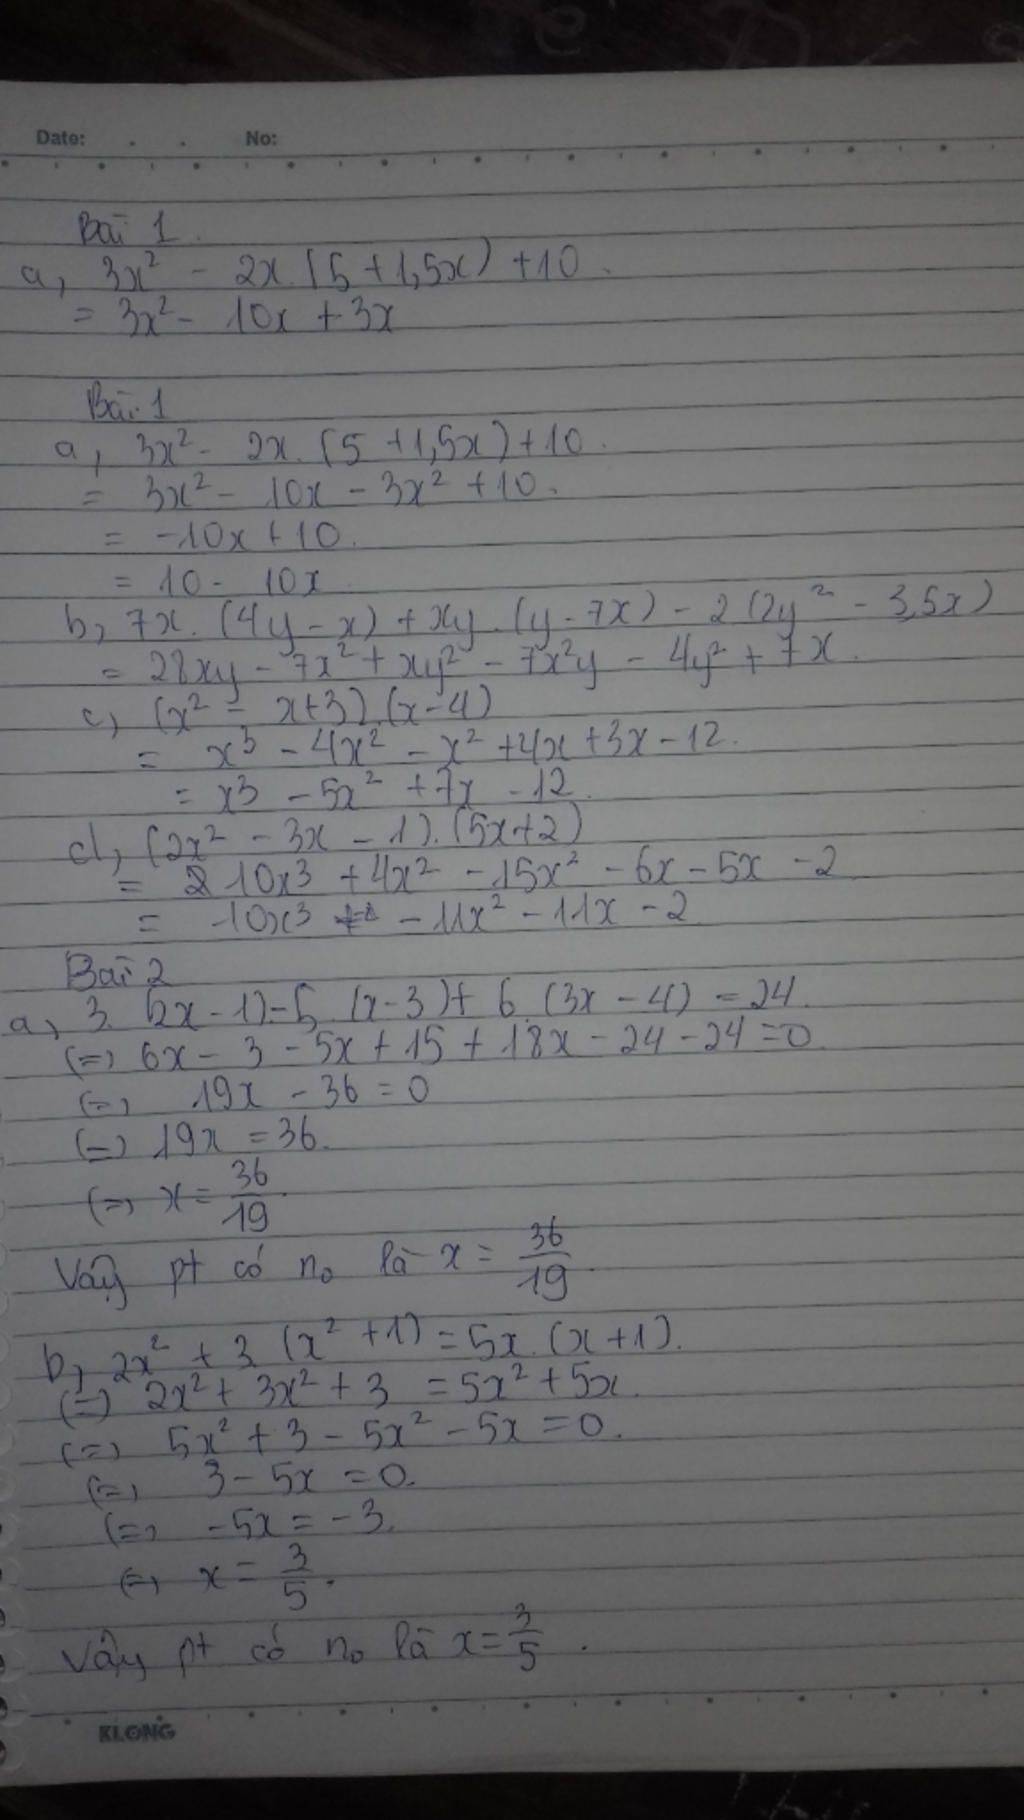 Date: . . No:
Bài 1.
a, 3x² - 2x.(5+1,5x) +10.
= 3x² - 10x + 3x
Bài 1
a, 3x² - 2x.(5+1,5x)+10.
= 3x² - 10x - 3x² +10.
= -10x + 10.
= 10 - 10x
b, 7x.(4y-x)+xy.(y-7x)-2(2y² - 3,5x)
= 28xy - 7x² + xy² - 7x²y - 4y² + 7x.
c, (x² - x+3).(x-4)
= x³ - 4x² - x² +4x +3x -12.
= x³ - 5x² + 7x - 12.
d, (2x² - 3x - 1).(5x+2)
= 10x³ + 4x² - 15x² - 6x - 5x - 2
= 10x³ - 11x² - 11x - 2
Bài 2
a, 3.(2x-1)-5.(x-3)+6.(3x-4) = 24.
(=) 6x - 3 - 5x + 15 + 18x - 24 - 24 = 0.
(=) 19x - 36 = 0
(=) 19x = 36.
(=) x = 36/19.
Vậy pt có n₀ là x = 36/19.
b, 2x² + 3(x² + 1) = 5x.(x+1).
(=) 2x² + 3x² + 3 = 5x² + 5x.
(=) 5x² + 3 - 5x² - 5x = 0.
(=) 3 - 5x = 0.
(=) -5x = -3.
(=) x = 3/5.
Vậy pt có n₀ là x = 3/5.
KLONG